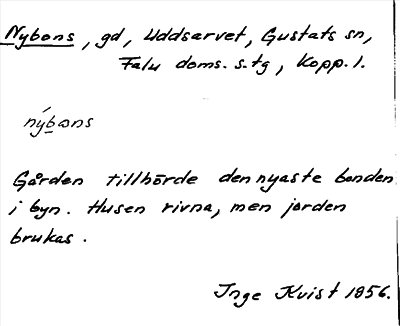 Nybons, gd, Uddsarvet, Gustafs sn,
Falu doms. s.tg, Kopp. l.
nýbons
Gården tillhörde den nyaste bonden
i byn. Husen rivna, men jorden
brukas.
Inge Kvist 1956.